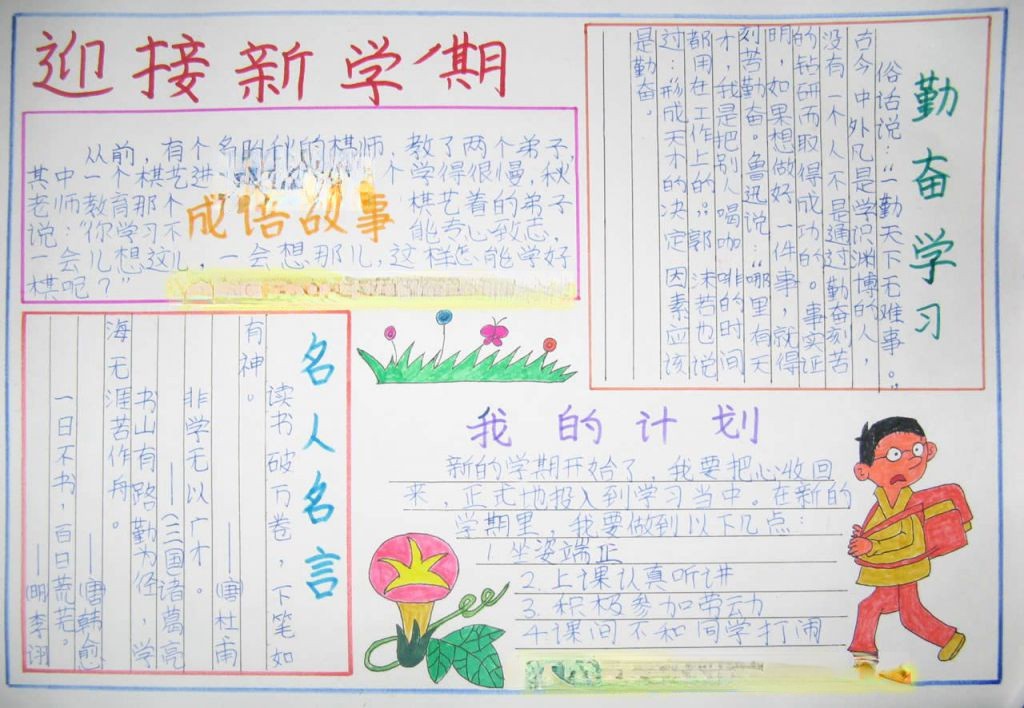 迎接新学期
从前，有个名叫秋的棋师，教了两个弟子，
其中一个棋艺进 个学得很慢，秋
老师教育那个 棋艺差的弟子
说：“你学习不 能专心致志，
一会儿想这儿，一会想那儿，这样怎能学好
棋呢？”
成语故事
勤奋学习
俗话说：“一勤天下无难事。”
古今中外凡是学识渊博的人，
没有一个人不是通过勤奋刻苦
的钻研而取得成功的。事实证
明，如果想做好一件事，就得
刻苦勤奋。鲁迅说：“哪里有天
才，我是把别人喝咖啡的时间
都用在工作上的。”郭沫若也说
过：“形成天才的决定因素应该
是勤奋。
名人名言
读书破万卷，下笔如
有神。
——(唐)杜甫
非学无以广才。
——(三国)诸葛亮
书山有路勤为径，学
海无涯苦作舟。
——(唐)韩愈
一日不书，百日荒芜。
——(明)李诩
我的计划
新的学期开始了，我要把心收回
来，正式地投入到学习当中。在新的
学期里，我要做到以下几点：
1.坐姿端正
2.上课认真听讲
3.积极参加劳动
4.课间不和同学打闹